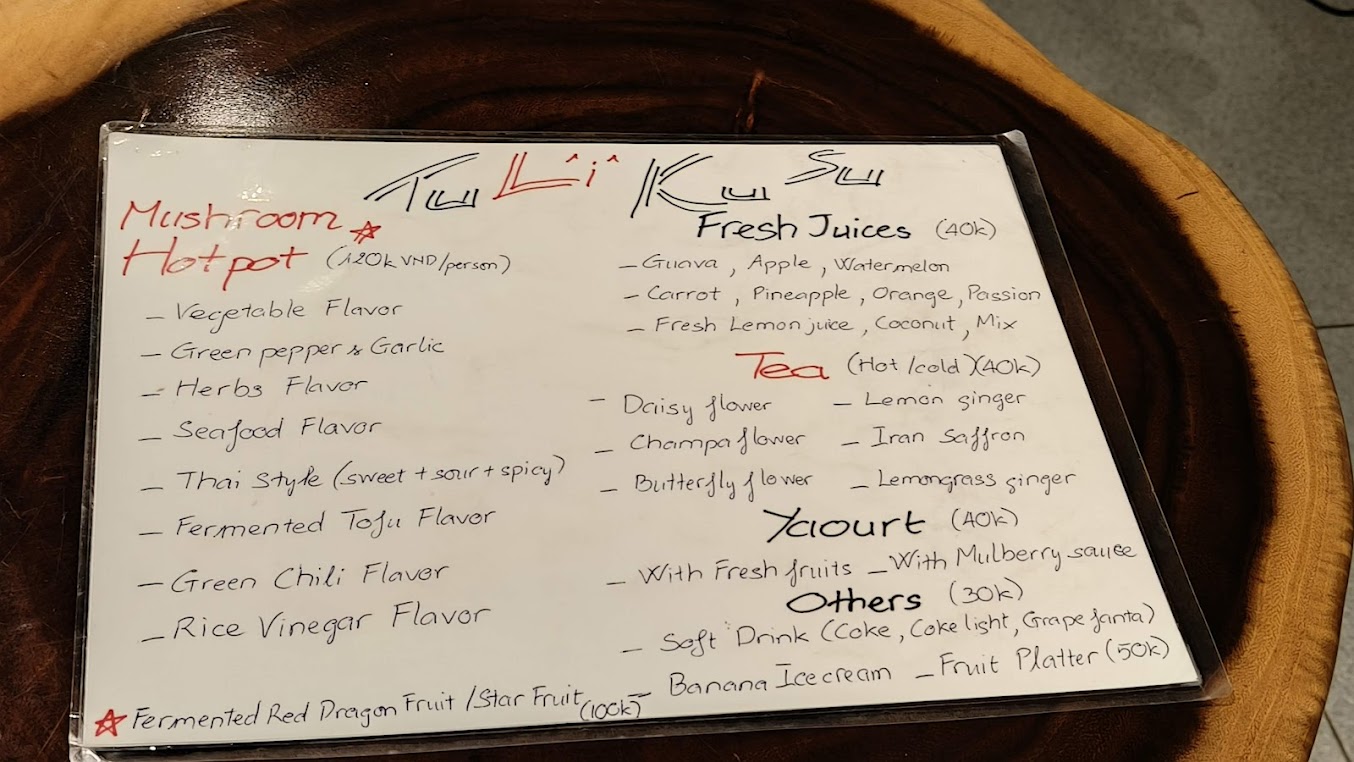 Tu Lî Ku Su
Mushroom
Hotpot (120k VND/person)
- Vegetable Flavor
- Green pepper & Garlic
- Herbs Flavor
- Seafood Flavor
- Thai Style (sweet + sour + spicy)
- Fermented Tofu Flavor
- Green Chili Flavor
- Rice Vinegar Flavor
☆ Fermented Red Dragon Fruit / Star Fruit (100k)
Fresh Juices (40k)
- Guava, Apple, Watermelon
- Carrot, Pineapple, Orange, Passion
- Fresh Lemon juice, Coconut, Mix
Tea (Hot/cold) (40k)
- Daisy flower - Lemon ginger
- Champa flower - Iran Saffron
- Butterfly flower - Lemongrass ginger
Yaourt (40k)
- With Fresh fruits - With Mulberry sauce
Others (30k)
- Soft Drink (Coke, Coke light, Grape fanta)
- Banana Ice cream - Fruit Platter (50k)